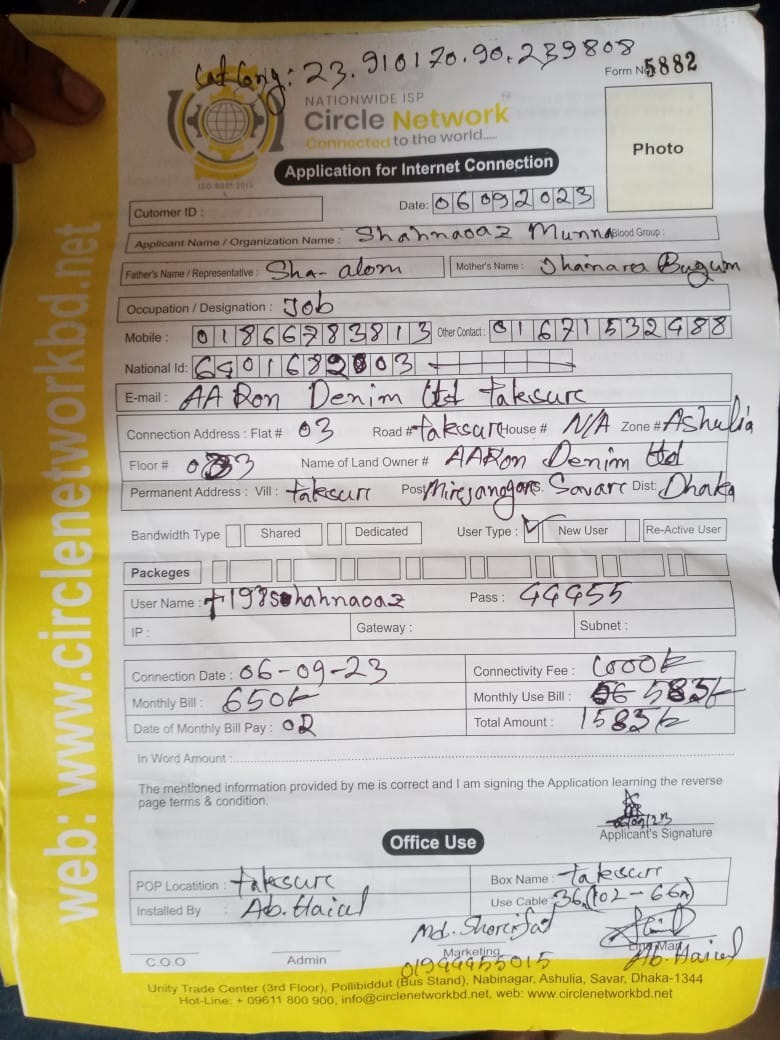 23.910170.90.239808
Form No 5882
NATIONWIDE ISP
Circle Network
Connected to the world.....
ISO 9001:2015
Application for Internet Connection
Photo
Cutomer ID :
Date: 06092023
Applicant Name / Organization Name : Shahnaoaz Munna Blood Group :
Father's Name / Representative : Sha-alom Mother's Name : Shamara Bugum
Occupation / Designation : Job
Mobile : 01866783813 Other Contact : 01671532488
National Id:
E-mail : AA Ron Denim Ltd taksurc
Connection Address : Flat # 03 Road # taksurc House # N/A Zone # Ashulia
Floor # Name of Land Owner # AARon Denim Ltd
Permanent Address : Vill : taksurc Post Savarc Dist: Dhaka
Bandwidth Type Shared Dedicated User Type : New User Re-Active User
Packeges
User Name : Pass : 44455
IP : Gateway : Subnet :
Connection Date : 06-09-23 Connectivity Fee :
Monthly Bill : 650/- Monthly Use Bill : 583/-
Date of Monthly Bill Pay : 02 Total Amount : 1583/-
In Word Amount :
The mentioned information provided by me is correct and I am signing the Application learning the reverse
page terms & condition.
Applicant's Signature
Office Use
POP Locatition : taksurc Box Name : taksurc
Installed By : Ab. Haicul Use Cable : 36,(102-66m)
Md. Shorcifat
C.O.O Admin Marketing Line Man
01944455015 Ab. Haicul
Unity Trade Center (3rd Floor), Pollibiddut (Bus Stand), Nabinagar, Ashulia, Savar, Dhaka-1344
Hot-Line: + 09611 800 900, info@circlenetworkbd.net, web: www.circlenetworkbd.net
web: www.circlenetworkbd.net